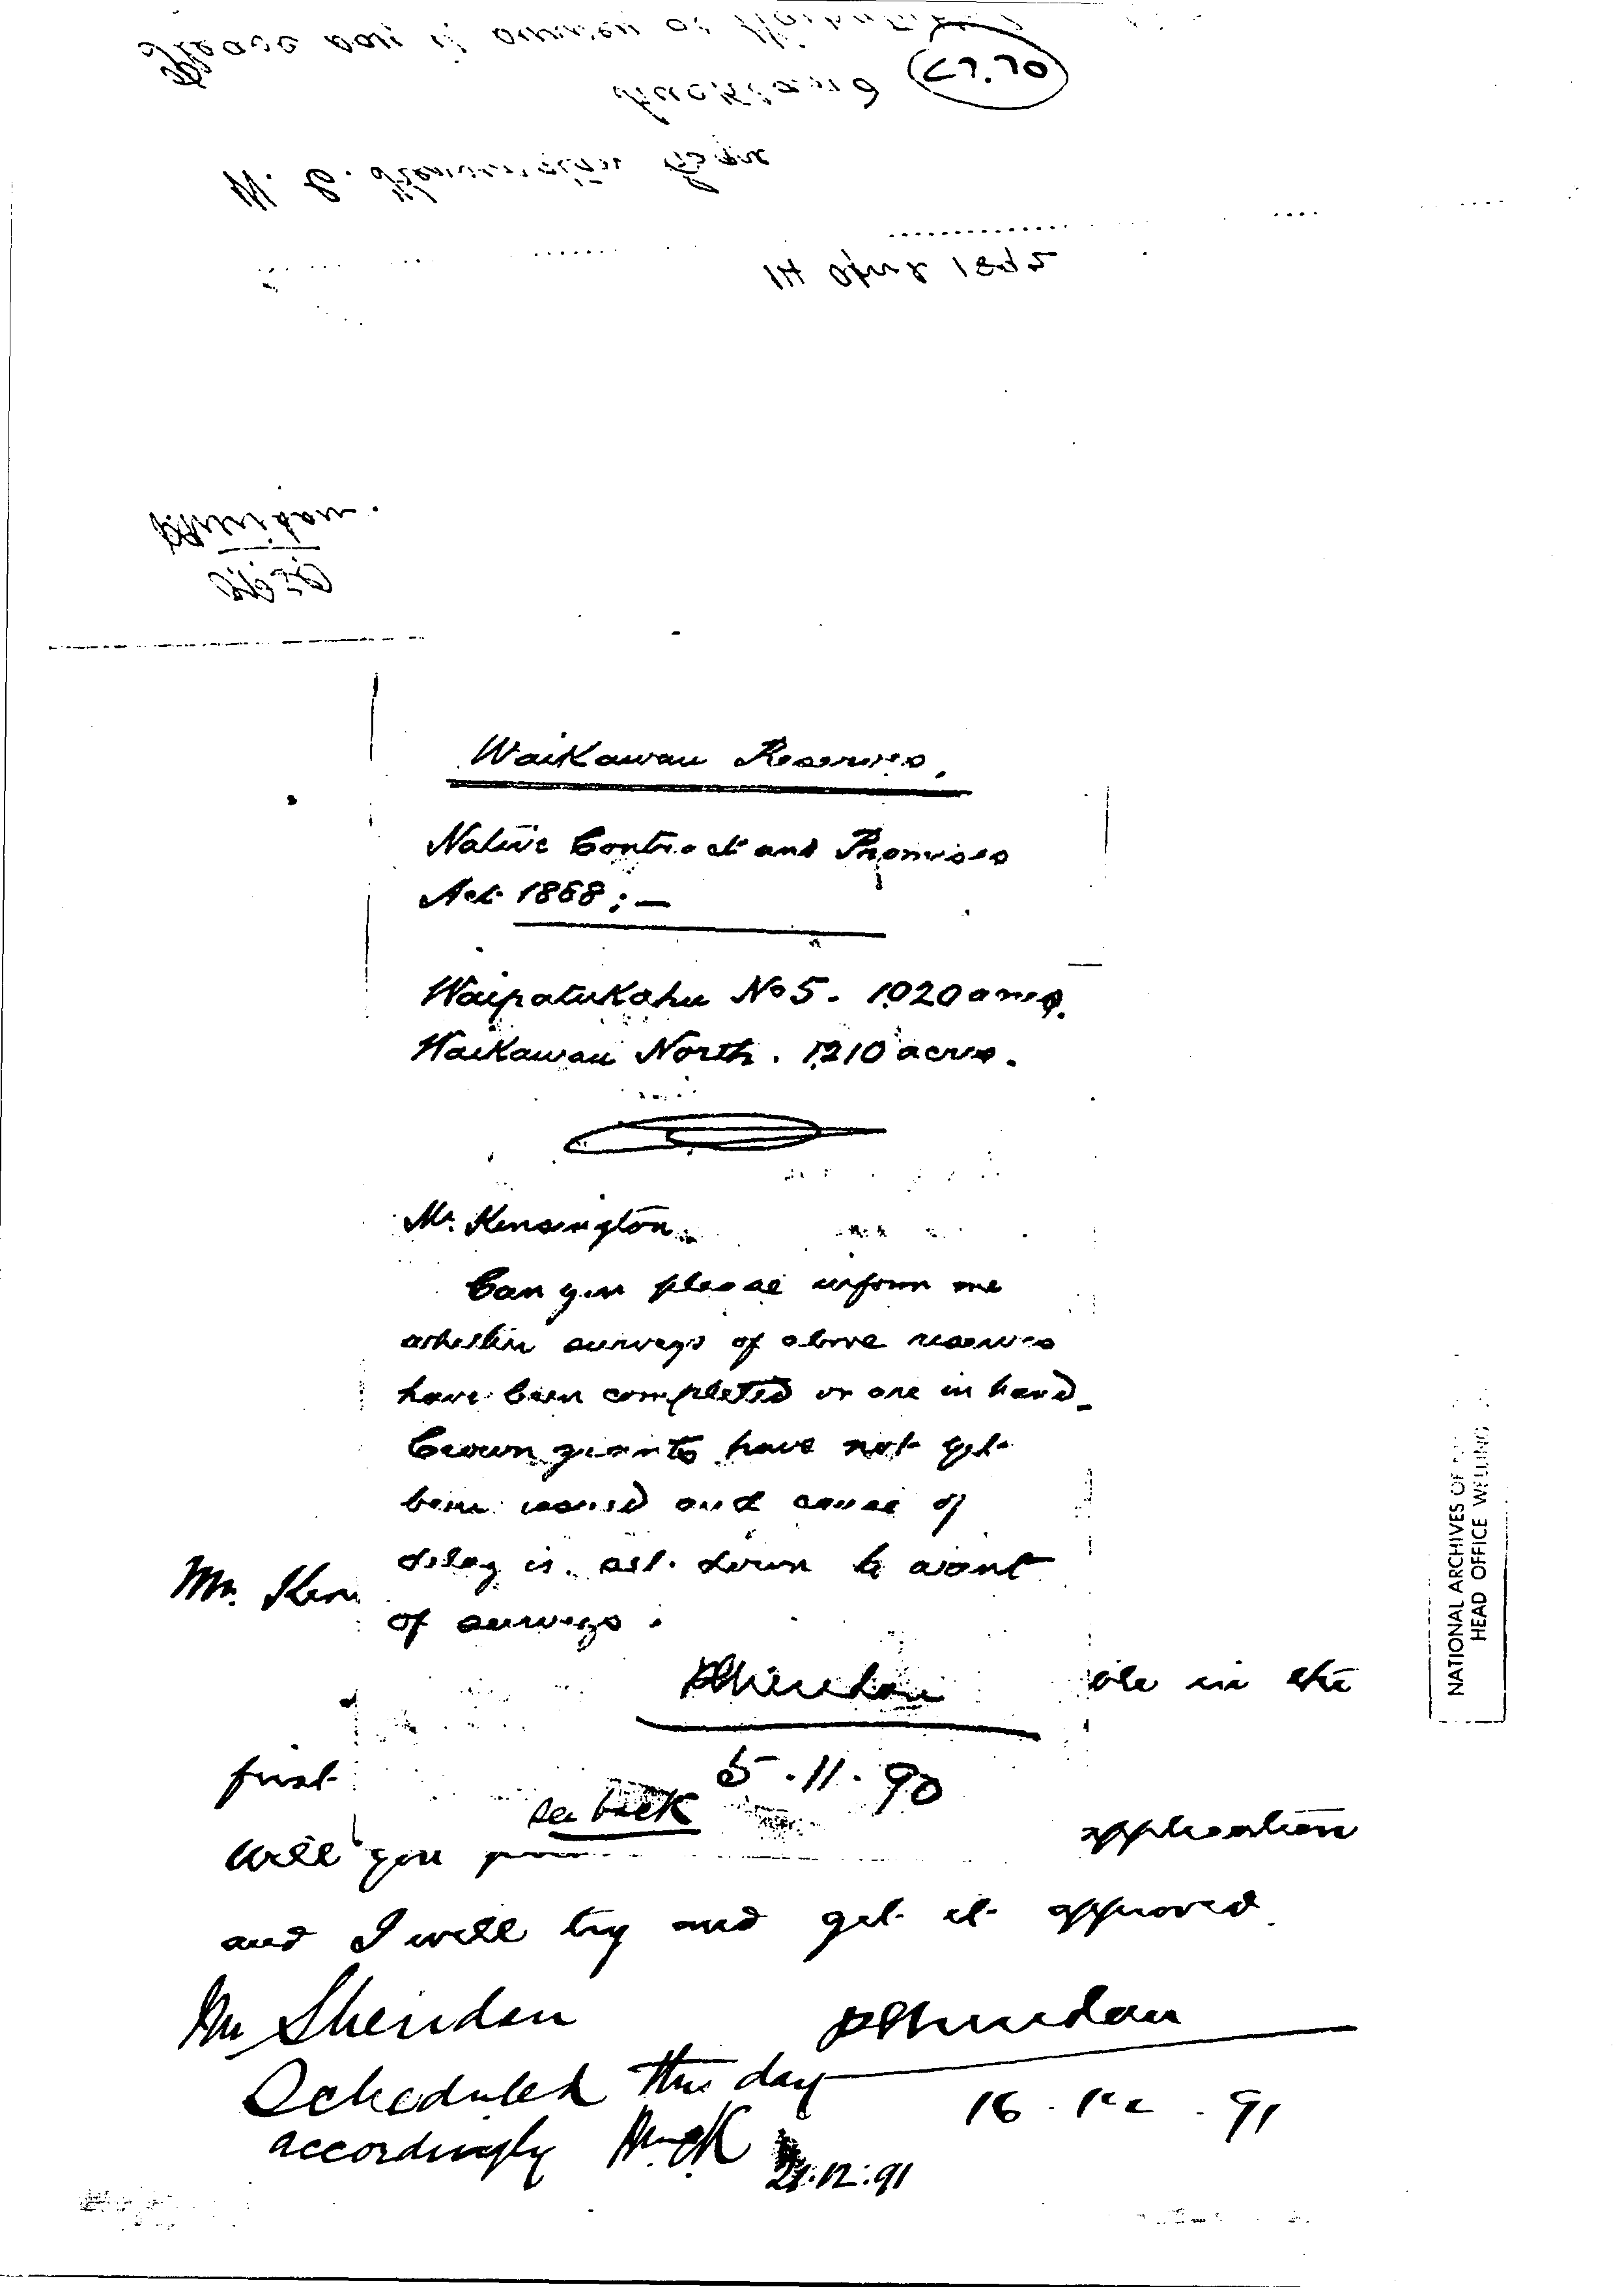 £7.70
14 April 1892
Waikawau Reserves.
Native Contract and Promises
Act 1888 : —
Waipatukahu No 5. 1020 acres.
Waikawau North. 1210 acres.
Mr. Kensington.
Can you please inform me
whether surveys of above reserves
have been completed or are in hand
Crown grants have not yet
been issued and cause of
delay is set down to want
of surveys.
PSheridan
5.11.90
see back
Mr. Ken
ole in the
first
will you
application
and I will try and get it approved
PSheridan
16.12.91
Mr Sheridan
Scheduled this day
accordingly
21.12.91
NATIONAL ARCHIVES OF
HEAD OFFICE WELLING